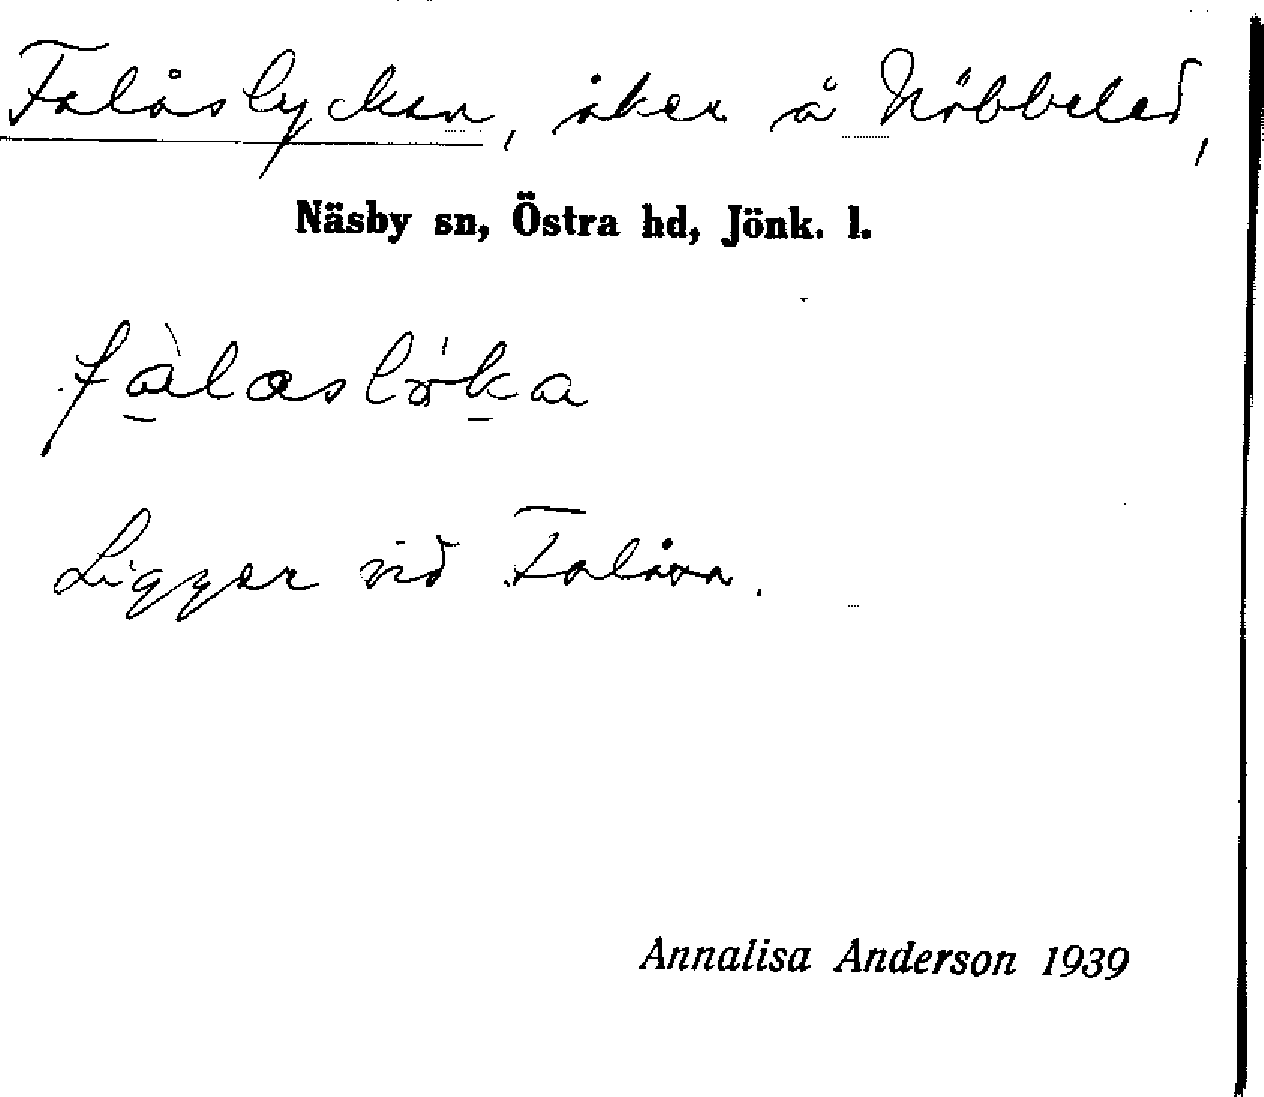 Falåslyckan, åker å Nöbbeled,
Näsby sn, Östra hd, Jönk. l.
Ligger vid Falåan.
Annalisa Anderson 1939